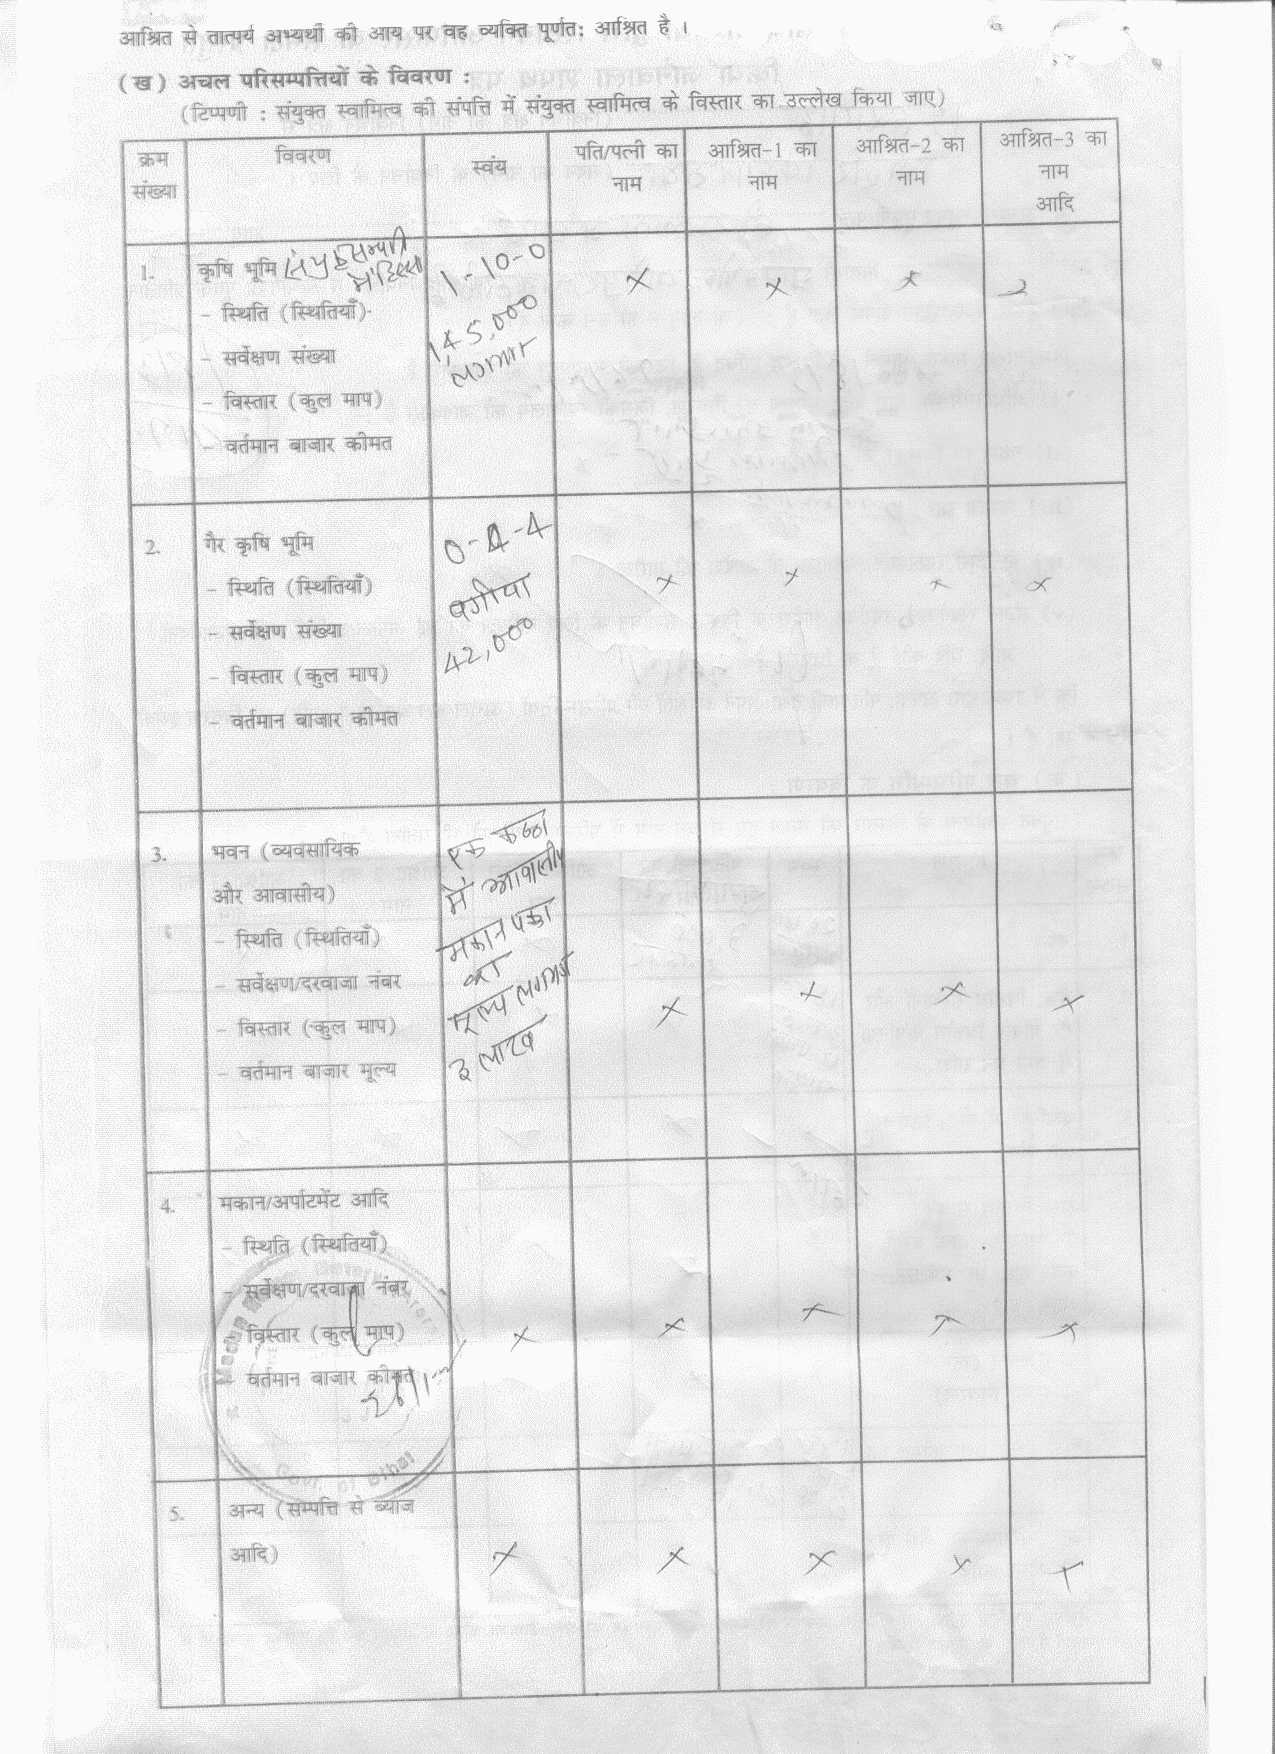 आश्रित से तात्पर्य अभ्यर्थी की आय पर वह व्यक्ति पूर्णतः आश्रित है ।
(ख) अचल परिसम्पत्तियों के विवरण :
(टिप्पणी : संयुक्त स्वामित्व की संपत्ति में संयुक्त स्वामित्व के विस्तार का उल्लेख किया जाए)
क्रम संख्या
विवरण
स्वंय
पति/पत्नी का नाम
आश्रित-1 का नाम
आश्रित-2 का नाम
आश्रित-3 का नाम आदि
1.
कृषि भूमि
में हिस्सा
- स्थिति (स्थितियाँ)
- सर्वेक्षण संख्या
- विस्तार (कुल माप)
- वर्तमान बाजार कीमत
1-10-0
1,45,000
लगभग
x x x
2.
गैर कृषि भूमि
- स्थिति (स्थितियाँ)
- सर्वेक्षण संख्या
- विस्तार (कुल माप)
- वर्तमान बाजार कीमत
0-4-4
बगीचा
42,000
x x x x
3.
भवन (व्यवसायिक
और आवासीय)
- स्थिति (स्थितियाँ)
- सर्वेक्षण/दरवाजा नंबर
- विस्तार (कुल माप)
- वर्तमान बाजार मूल्य
एक कठ्ठा
में आवासीय
मकान पक्का
का
मूल्य लगभग
3 लाख
x x x x
4.
मकान/अर्पाटमेंट आदि
- स्थिति (स्थितियाँ)
- सर्वेक्षण/दरवाजा नंबर
- विस्तार (कुल माप)
- वर्तमान बाजार कीमत
x x x x x
Govt. of Bihar
5.
अन्य (सम्पत्ति से ब्याज
आदि)
x x x x x